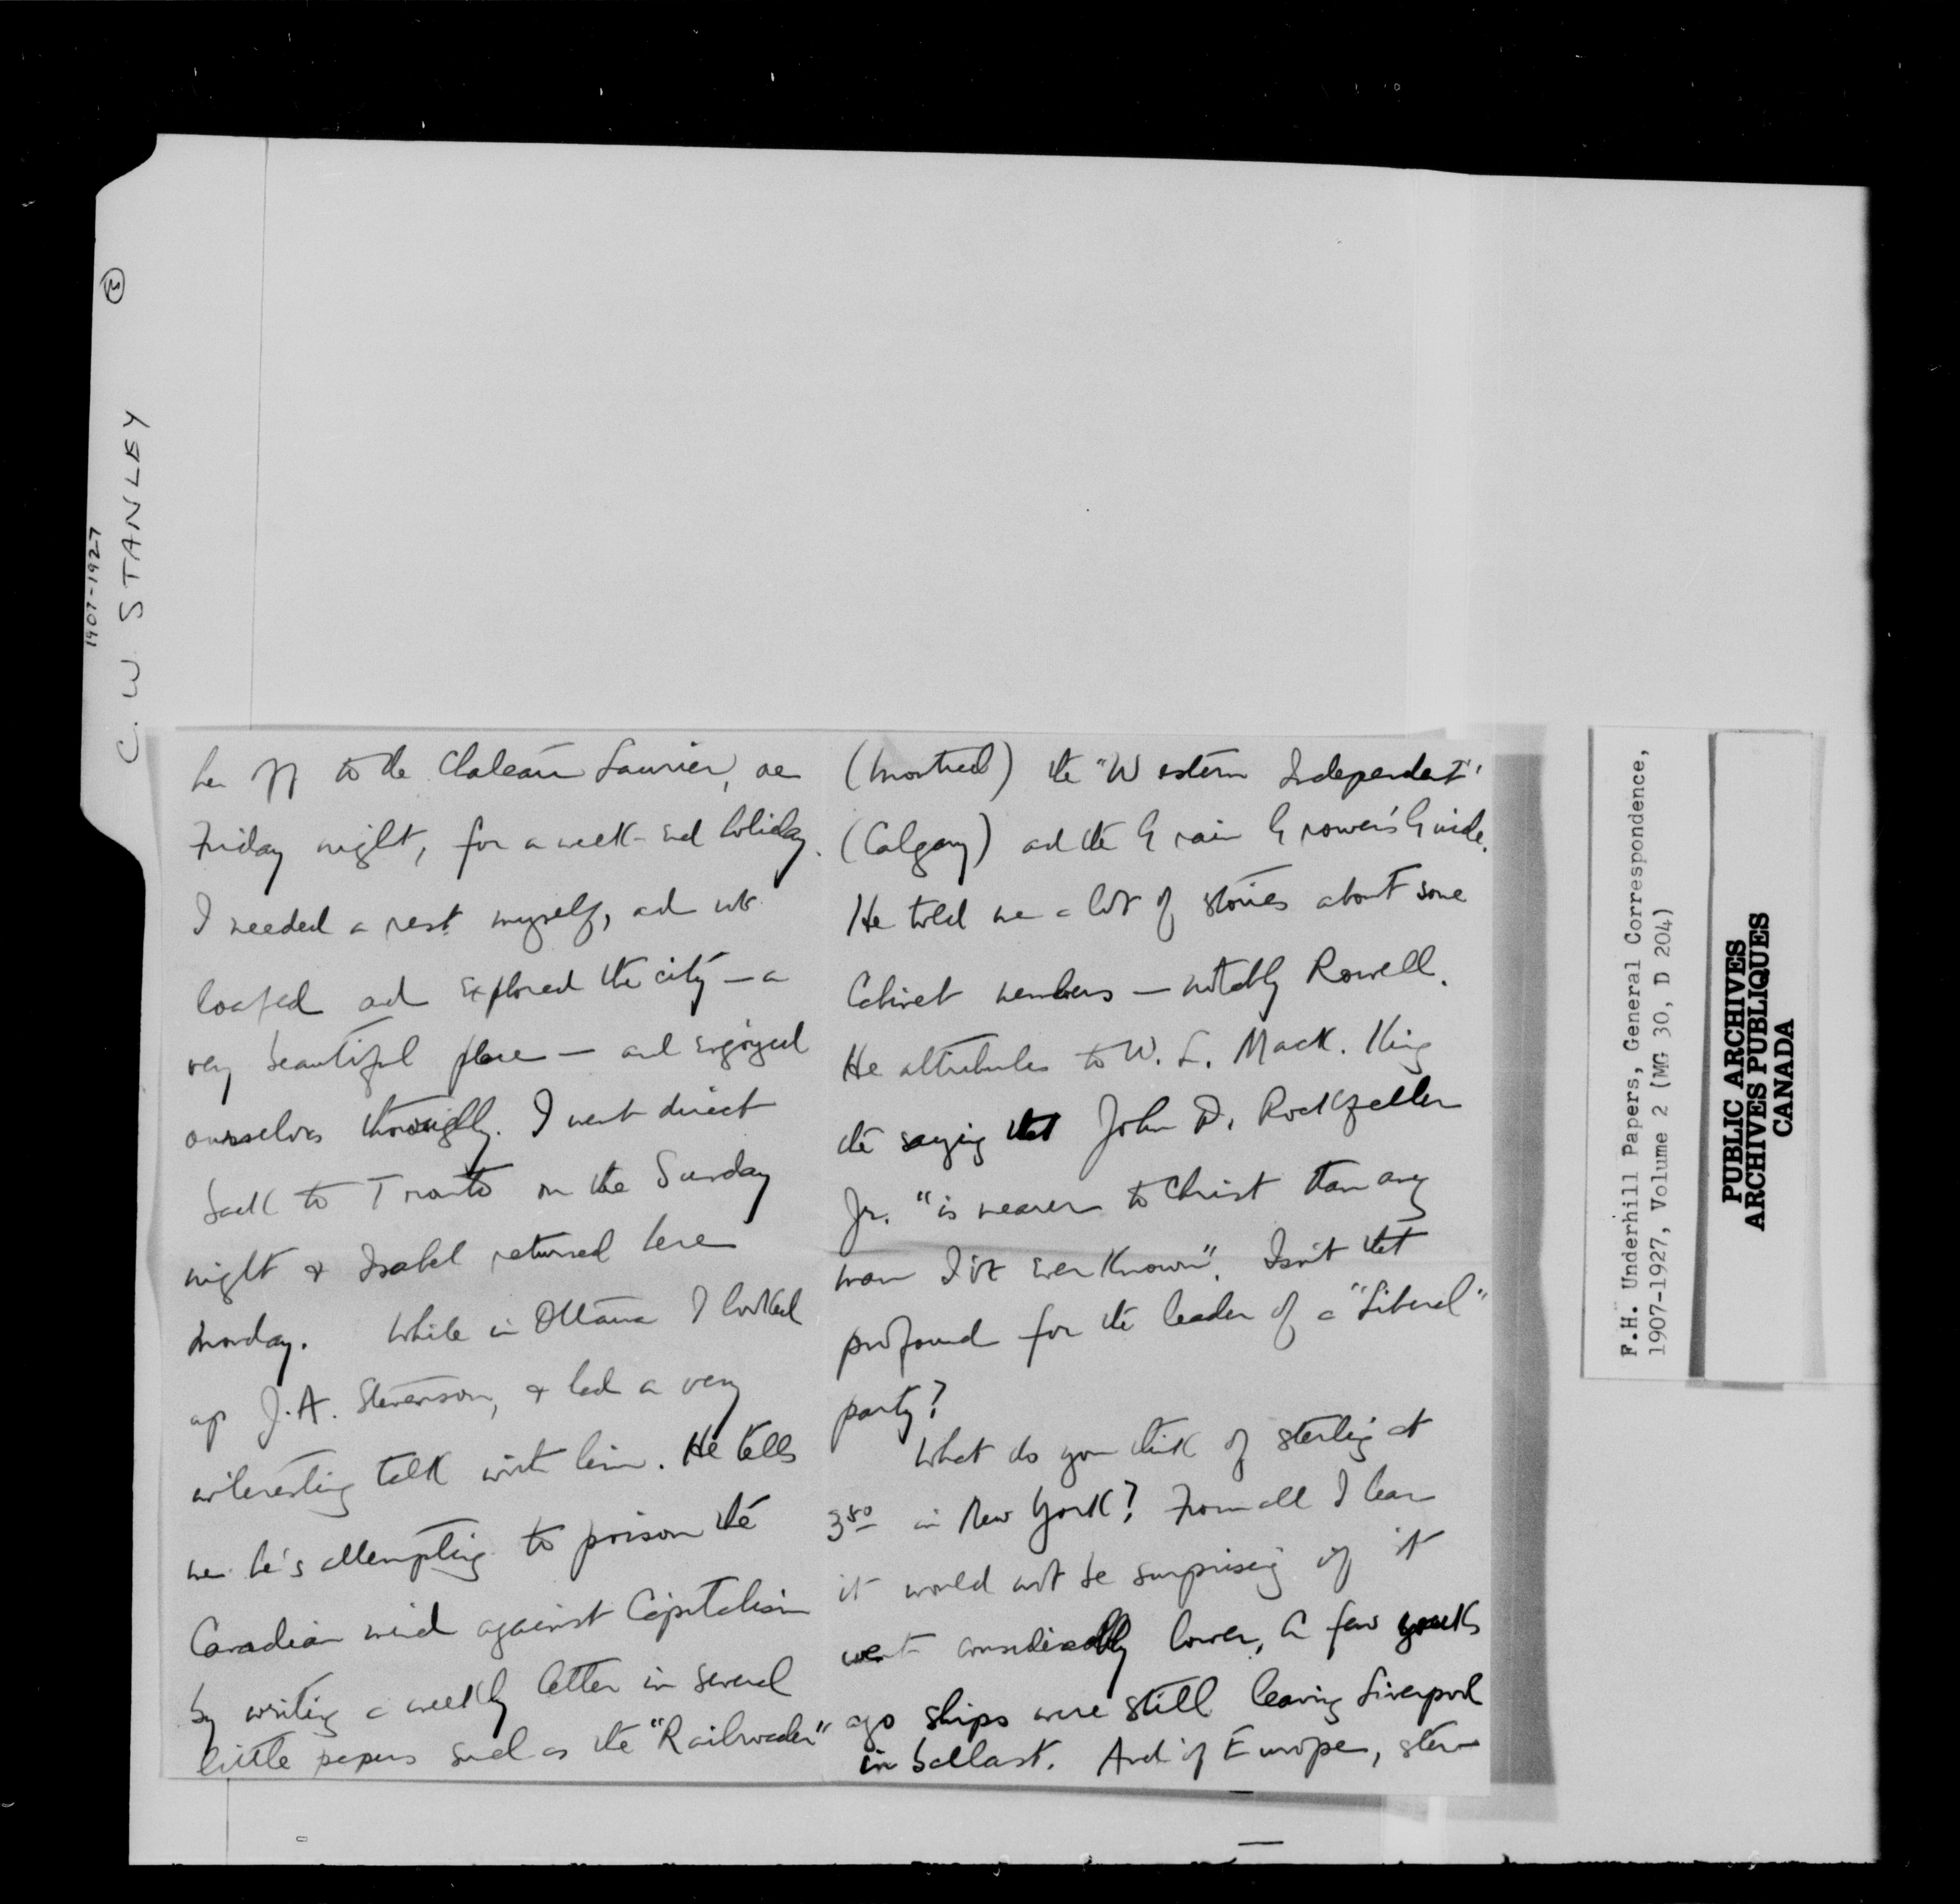 C. W STANLEY
1907-1927
her off to the Chateau Laurier, on
Friday night, for a week-end holiday.
I needed a rest myself, and we
loafed and explored the city — a
very beautiful place — and enjoyed
ourselves thoroughly. I went direct
back to Toronto on the Sunday
night & Isabel returned here
Monday. While in Ottawa I looked
up J. A. Stevenson, & had a very
interesting talk with him. He tells
me he's attempting to poison the
Canadian mind against Capitalism
by writing a weekly letter in several
little papers such as the "Railroader"
(Montreal) the "Western Independent"
(Calgary) and the Grain Grower's Guide.
He told me a lot of stories about some
Cabinet members — notably Rowell.
He attributes to W. L. Mack. King
the saying that John D. Rockefeller
Jr. "is nearer to Christ than any
man I've ever known". Isn't that
profound for the leader of a "Liberal"
party?
What do you think of sterling at
3⁵⁰ in New York? From all I hear
it would not be surprising if it
went considerably lower. A few weeks
ago ships were still leaving Liverpool
in ballast. And if Europe,
F.H. Underhill Papers, General Correspondence,
1907-1927, Volume 2 (MG 30, D 204)
PUBLIC ARCHIVES
ARCHIVES PUBLIQUES
CANADA